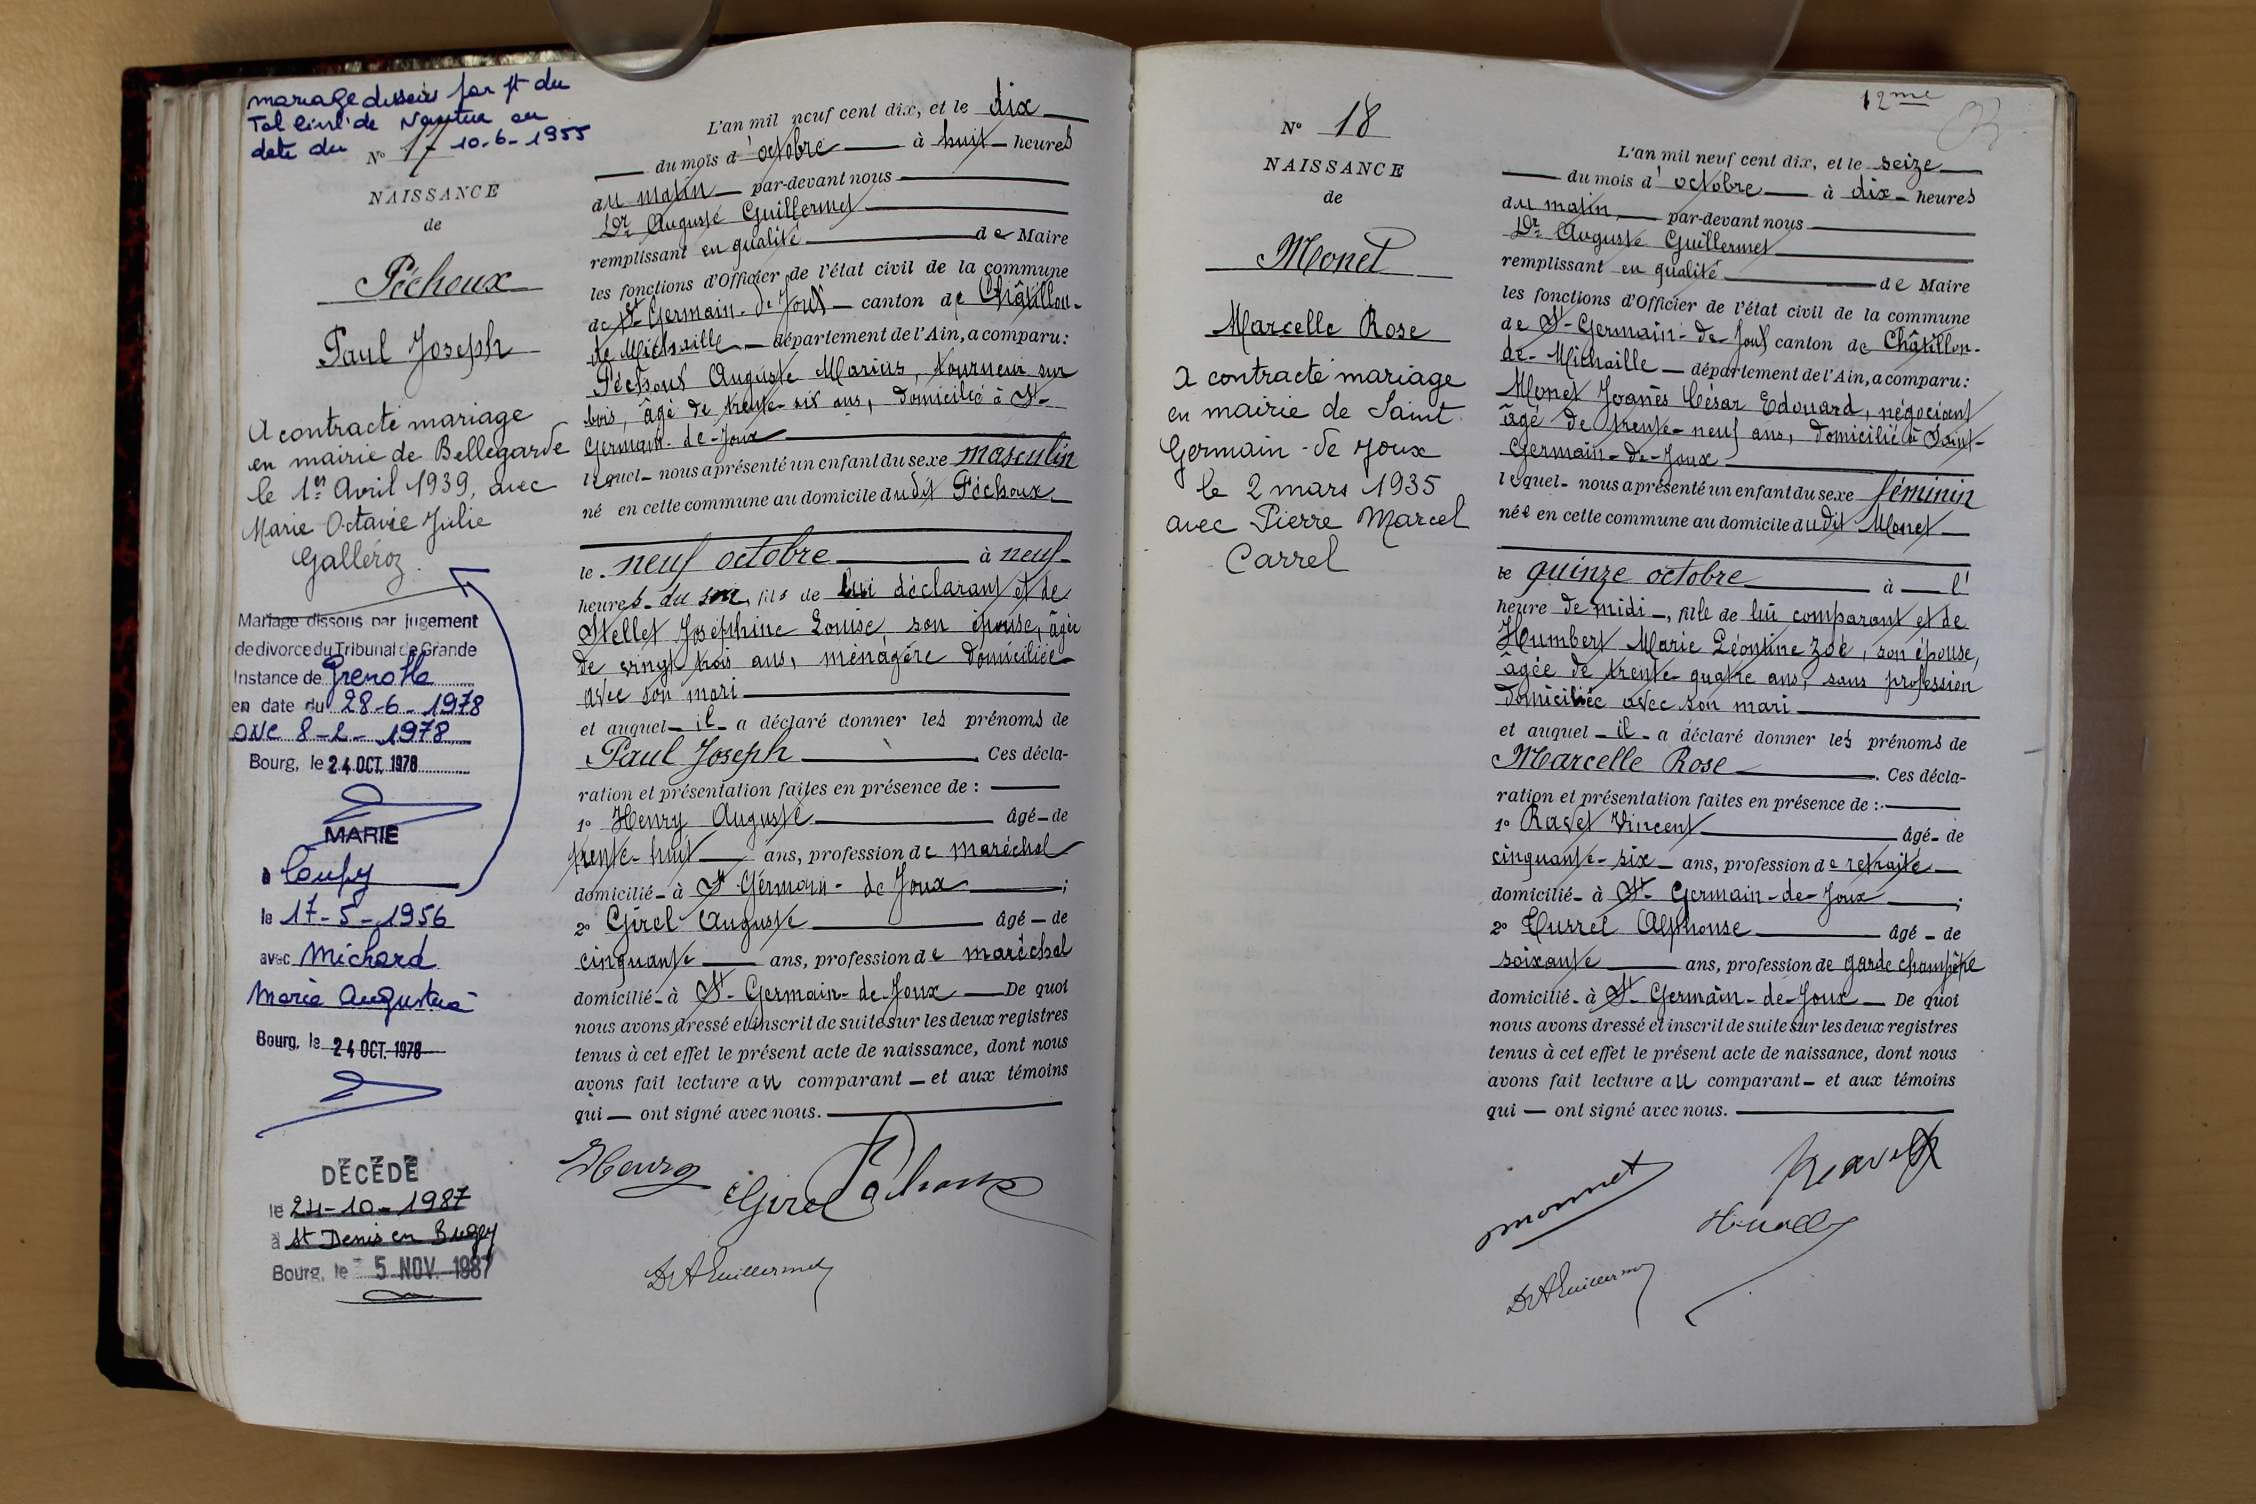 mariage dissous par jt du
Tal civil de Nantua en
date du 10-6-1955
N° 17
NAISSANCE
de
Péchoux
Paul Joseph
A contracté mariage
en mairie de Bellegarde
le 1er Avril 1939, avec
Marie Octavie Julie
Galléroz.
Mariage dissous par jugement
de divorce du Tribunal de Grande
Instance de Grenoble
en date du 28-6-1978
ONC 8-2-1978
Bourg, le 24 OCT. 1978
MARIE
à Coupy
le 17-5-1956
avec Michard
Marie Augustine
Bourg, le 24 OCT. 1978
DÉCÉDÉ
le 24-10-1987
à St Denis en Bugey
Bourg, le 5 NOV. 1987
L'an mil neuf cent dix, et le dix
du mois d'octobre à huit heures
du matin par-devant nous
Dr Auguste Guillermet
remplissant en qualité de Maire
les fonctions d'Officier de l'état civil de la commune
de St-Germain-de-Joux canton de Châtillon-
de Michaille département de l'Ain, a comparu:
Péchoux Auguste Marius, tourneur sur
bois, âgé de trente-six ans, domicilié à St-
Germain-de-Joux
lequel nous a présenté un enfant du sexe masculin
né en cette commune au domicile dudit Péchoux
le neuf octobre à neuf
heures du soir, fils de lui déclarant et de
Stellet Joséphine Louise, son épouse, âgée
de vingt trois ans, ménagère domiciliée
avec son mari
et auquel il a déclaré donner les prénoms de
Paul Joseph. Ces décla-
ration et présentation faites en présence de :
1° Henry Auguste âgé de
trente-huit ans, profession de maréchal
domicilié à St-Germain-de Joux ;
2° Girel Auguste âgé de
cinquante ans, profession de maréchal
domicilié à St-Germain-de-Joux De quoi
nous avons dressé et inscrit de suite sur les deux registres
tenus à cet effet le présent acte de naissance, dont nous
avons fait lecture au comparant et aux témoins
qui ont signé avec nous.
Henry
Girel Péchoux
Dr A Guillermet
12me
N° 18
NAISSANCE
de
Monet
Marcelle Rose
A contracté mariage
en mairie de Saint
Germain-de Joux
le 2 mars 1935
avec Pierre Marcel
Carrel
L'an mil neuf cent dix, et le seize
du mois d'octobre à dix heures
du matin par-devant nous
Dr Auguste Guillermet
remplissant en qualité de Maire
les fonctions d'Officier de l'état civil de la commune
de St-Germain-de-Joux canton de Châtillon-
de-Michaille département de l'Ain, a comparu:
Monet Joanès César Edouard, négociant
âgé de trente-neuf ans, domicilié à Saint-
Germain-de-Joux
lequel nous a présenté un enfant du sexe féminin
née en cette commune au domicile dudit Monet
le quinze octobre à l'
heure de midi, fille de lui comparant et de
Humbert Marie Léontine Zoé, son épouse,
âgée de trente-quatre ans, sans profession
domiciliée avec son mari
et auquel il a déclaré donner les prénoms de
Marcelle Rose. Ces décla-
ration et présentation faites en présence de :
1° Ravet Vincent âgé de
cinquante-six ans, profession de retraité
domicilié à St-Germain-de-Joux ;
2° Turrel Alphonse âgé de
soixante ans, profession de garde champêtre
domicilié à St-Germain-de-Joux De quoi
nous avons dressé et inscrit de suite sur les deux registres
tenus à cet effet le présent acte de naissance, dont nous
avons fait lecture au comparant et aux témoins
qui ont signé avec nous.
monnet
Ravet
Dr A Guillermet